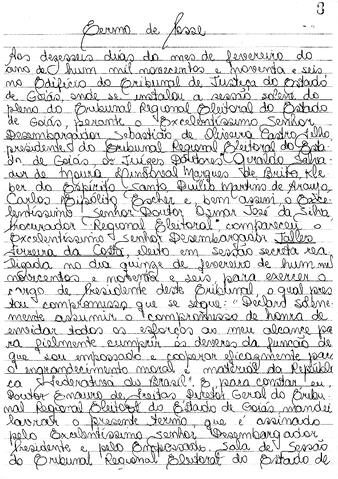 3
Termo de Posse
Aos dezesseis dias do mes de fevereiro do
ano de hum mil novecentos e noventa e seis
no Edifício do Tribunal de Justiça do Estado
de Goiás, onde se instalou a sessão solene do
pleno do Tribunal Regional Eleitoral do Estado
de Goiás, perante o Excelentíssimo Senhor
Desembargador Sebastião de Oliveira Castro Filho,
presidente do Tribunal Regional Eleitoral do Esta-
do de Goiás, os Juízes Doutores
de Moura Marques de Brito, Kle-
ber do Espírito Santo, Duílio Martins de Araujo,
Carlos Hipólito Escher e, bem assim o Exce-
lentíssimo Senhor Doutor José da Silva
Procurador Regional Eleitoral compareceu o
Excelentíssimo Senhor Desembargador Jalles
Ferreira da Costa, eleito em sessão secreta rea-
lizada no dia quinze de fevereiro de hum mil
novecentos e noventa e seis para exercer o
cargo de Presidente deste Tribunal, o qual pres-
tou compromisso que se segue: "Declaro solene-
mente assumir o compromisso de honra de
envidar todos os esforços ao meu alcance pa
ra fielmente cumprir os deveres da função de
que sou empossado e cooperar eficazmente para
o engrandecimento moral e material da Repúbli-
ca Federativa do Brasil". E para constar eu,
Doutor de Freitas Diretor Geral do Tribu-
nal Regional Eleitoral do Estado de Goiás, mandei
lavrar o presente termo, que é assinado
pelo Excelentíssimo Senhor Desembargador
Presidente e pelo Empossado. Sala de Sessão
do Tribunal Regional Eleitoral do Estado de